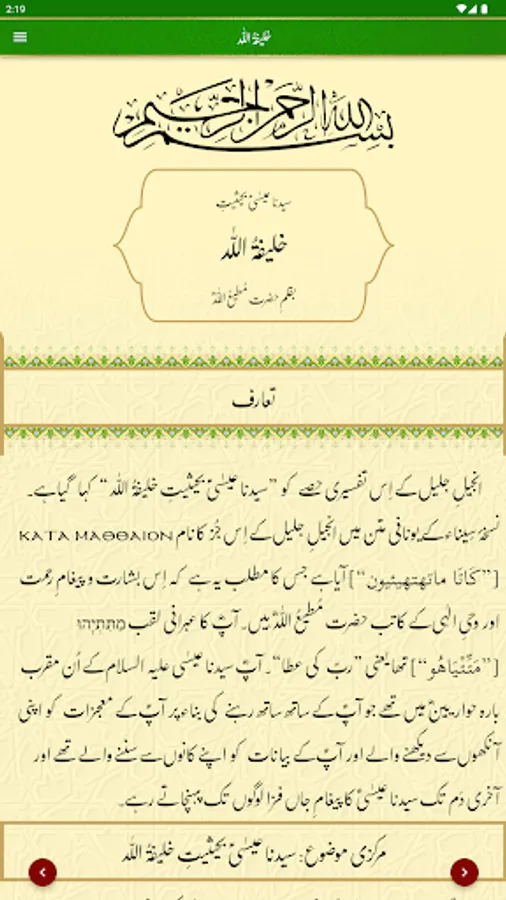 2:19
خلیفۃُ اللہ
بِسْمِ اللّٰهِ الرَّحْمٰنِ الرَّحِيْمِ
سیدنا عیسٰیؑ بحیثیتِ
خلیفۃُ اللہ
بقلم حضرت مُطیعُ اللہؒ
تعارف
انجیلِ جلیل کے اِس تفسیری حصے کو ”سیدنا عیسٰیؑ بحیثیتِ خلیفۃُ اللہ“ کہا گیا ہے۔
نسخۂ سِیناء کے یونانی متن میں انجیلِ جلیل کے اِس جُز کا نام ΚΑΤΑ ΜΑΘΘΑΙΟΝ
[”كَاتَا ماتھتھیئیون“] آیا ہے جس کا مطلب یہ ہے کہ اِس بشارت و پیغامِ رحمت
اور وحیِ الٰہی کے کاتب حضرت مُطیعُ اللہؒ ہیں۔ آپؒ کا عبرانی لقب מַתִּתְיָהוּ
[”مَتِّتْيَاهُو“] تھا یعنی ”ربّ کی عطا“۔ آپؒ سیدنا عیسٰی علیہ السلام کے اُن مقرب
بارہ حواریینؒ میں تھے جو آپؑ کے ساتھ ساتھ رہنے کی بناء پر آپؑ کے معجزات کو اپنی
آنکھوں سے دیکھنے والے اور آپؑ کے بیانات کو اپنے کانوں سے سننے والے تھے اور
آخری دَم تک سیدنا عیسٰیؑ کا پیغامِ جاں فزا لوگوں تک پہنچاتے رہے۔
مرکزی موضوع: سیدنا عیسٰیؑ بحیثیتِ خلیفۃُ اللہ